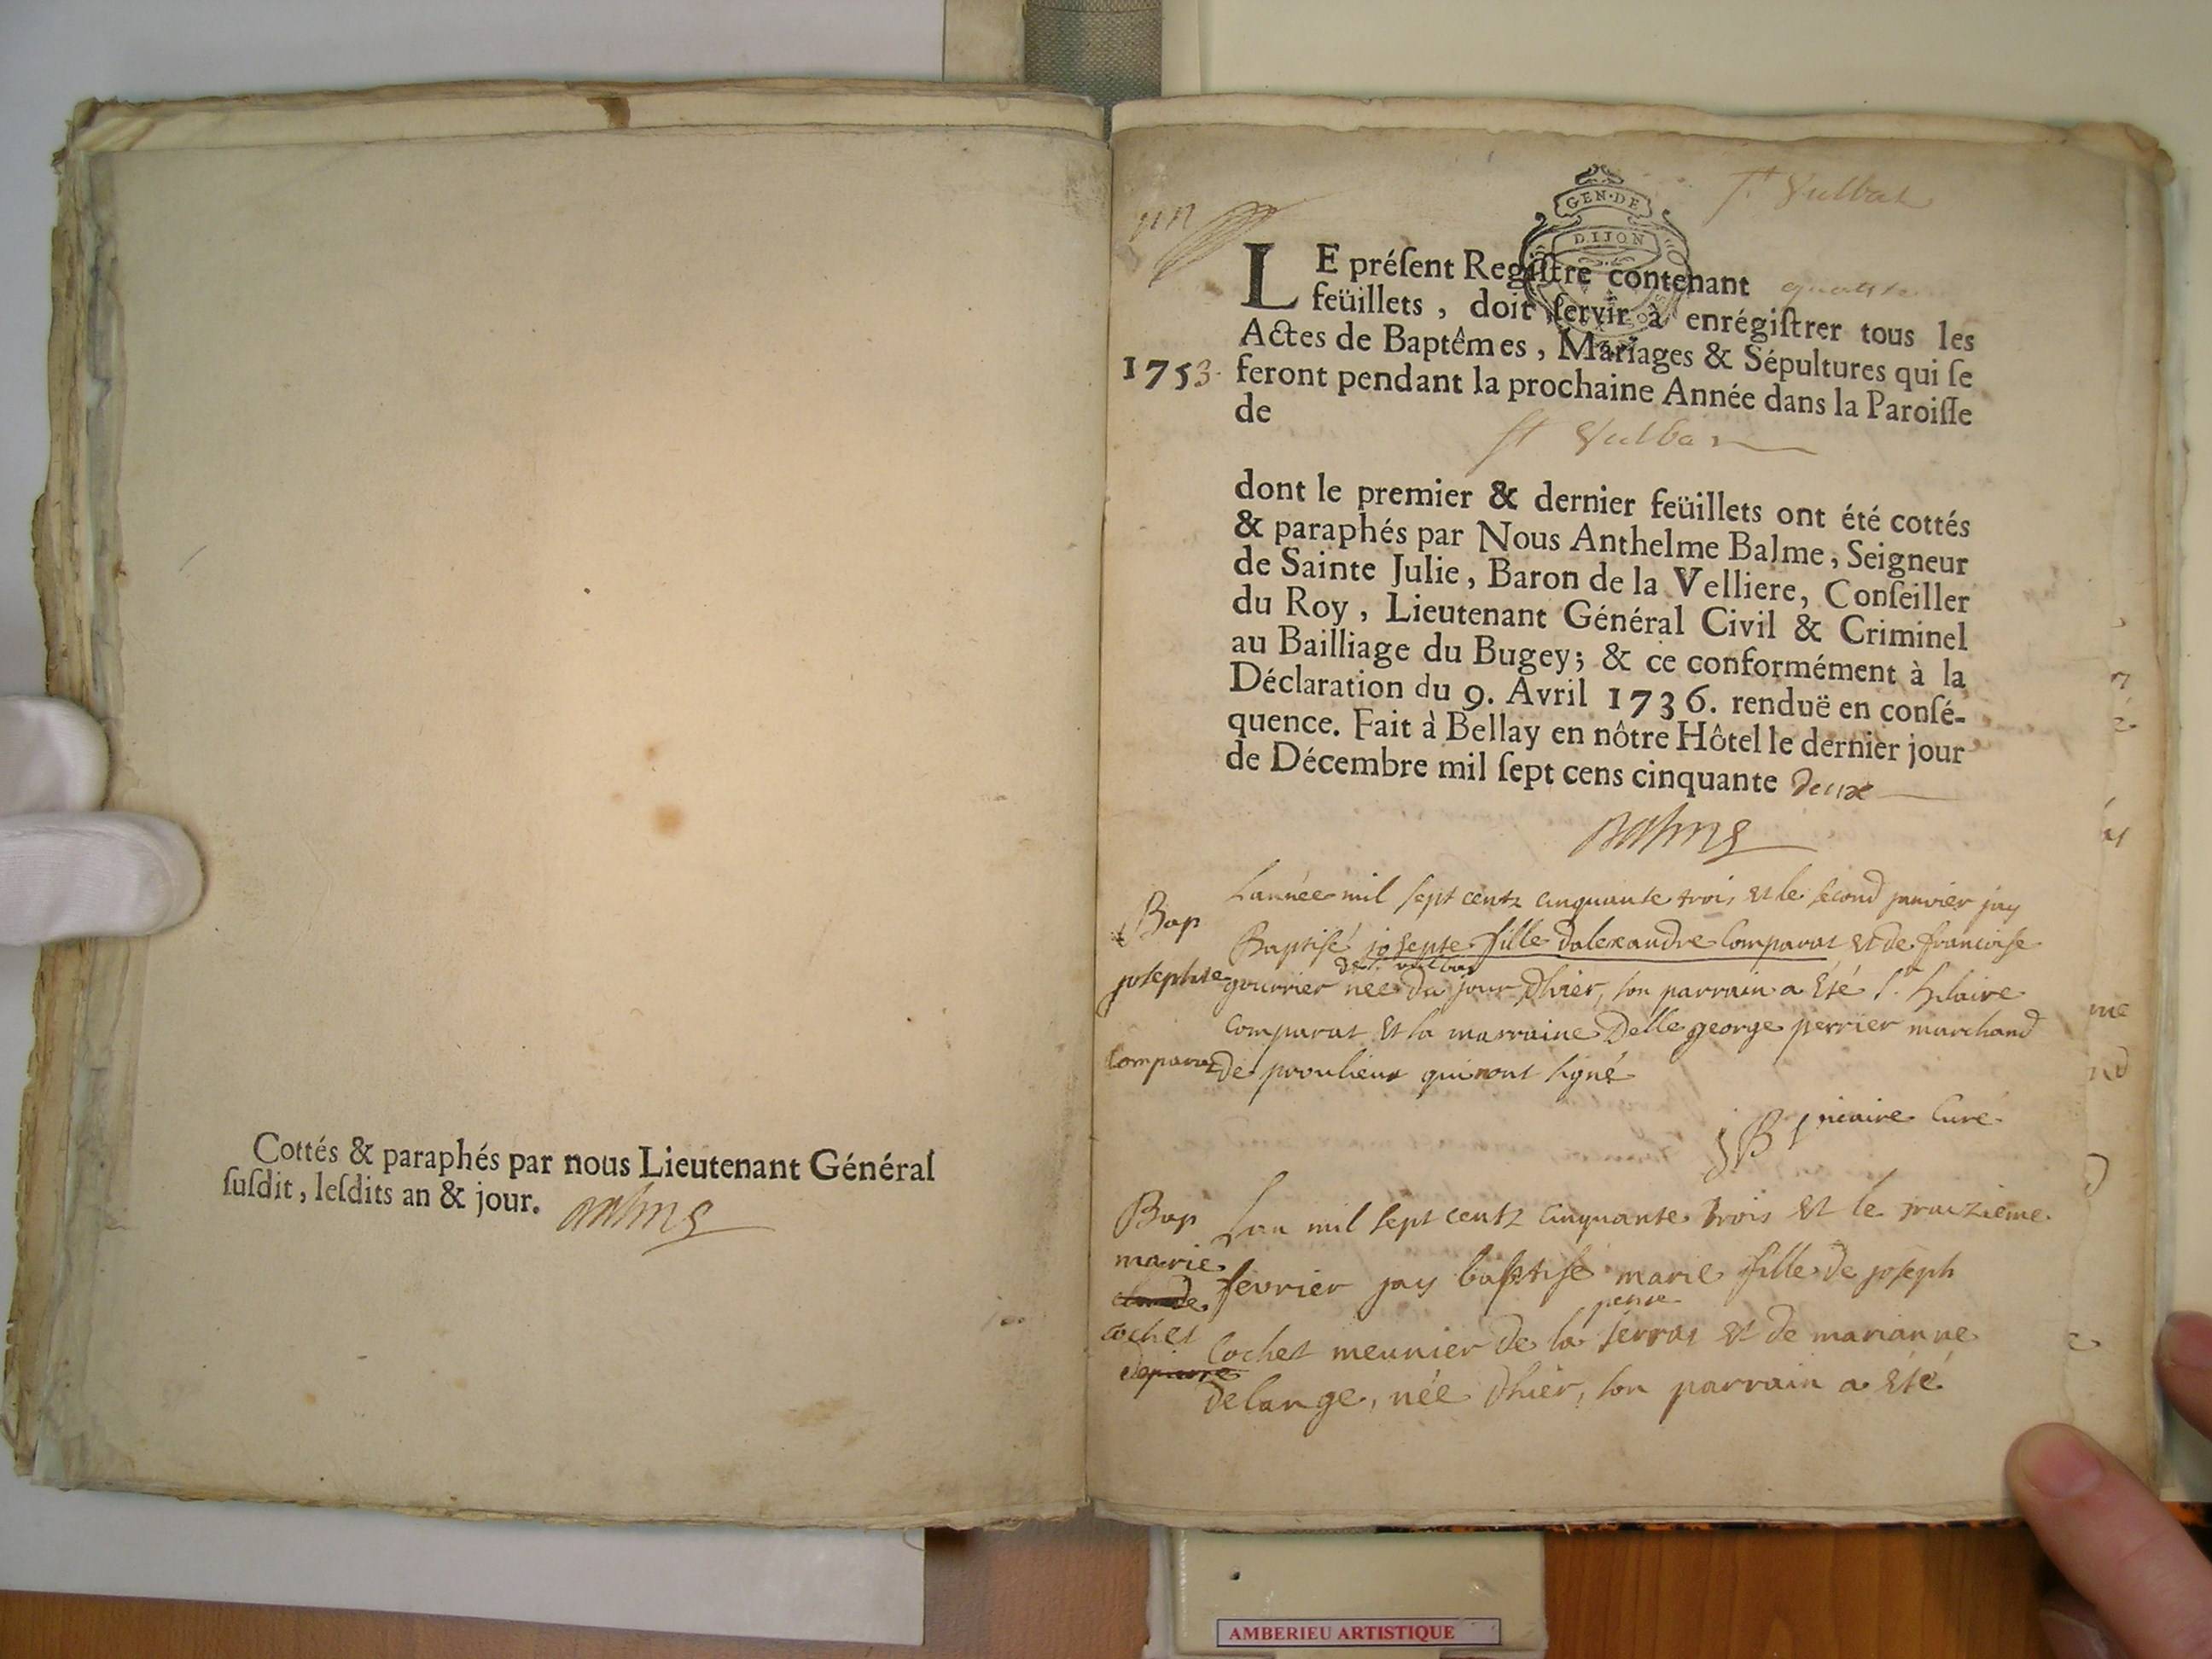 Cottés & paraphés par nous Lieutenant Général
ſuſdit, leſdits an & jour.
Balme
GEN·DE
DIJON
St Vulbat
un
LE préſent Regiſtre contenant
feüillets, doit ſervir à enrégiſtrer tous les
Actes de Baptêmes, Mariages & Sépultures qui ſe
1753. feront pendant la prochaine Année dans la Paroiſſe
de
St Vulbas
dont le premier & dernier feüillets ont été cottés
& paraphés par Nous Anthelme Balme, Seigneur
de Sainte Julie, Baron de la Velliere, Conſeiller
du Roy, Lieutenant Général Civil & Criminel
au Bailliage du Bugey; & ce conformément à la
Déclaration du 9. Avril 1736. renduë en conſé-
quence. Fait à Bellay en nôtre Hôtel le dernier jour
de Décembre mil ſept cens cinquante deux
Balme
Bap
josephte
Comparat
Lannée mil sept centz cinquante trois et le second janvier jay
Baptisé josepte fille dalexandre Comparat et de francoise
de st vulbas
gourrier née du jour dhier, son parrain a été sr hilaire
Comparat et la marraine Delle george perrier marchand
de proulieux qui nont signé
curé
Bap
marie
claude
cochet
Lan mil sept centz cinquante trois et le traizieme
fevrier jay baptisé marie fille de joseph
Cochet meunier de la serras et de marianne
delange, née dhier, son parrain a été
AMBERIEU ARTISTIQUE